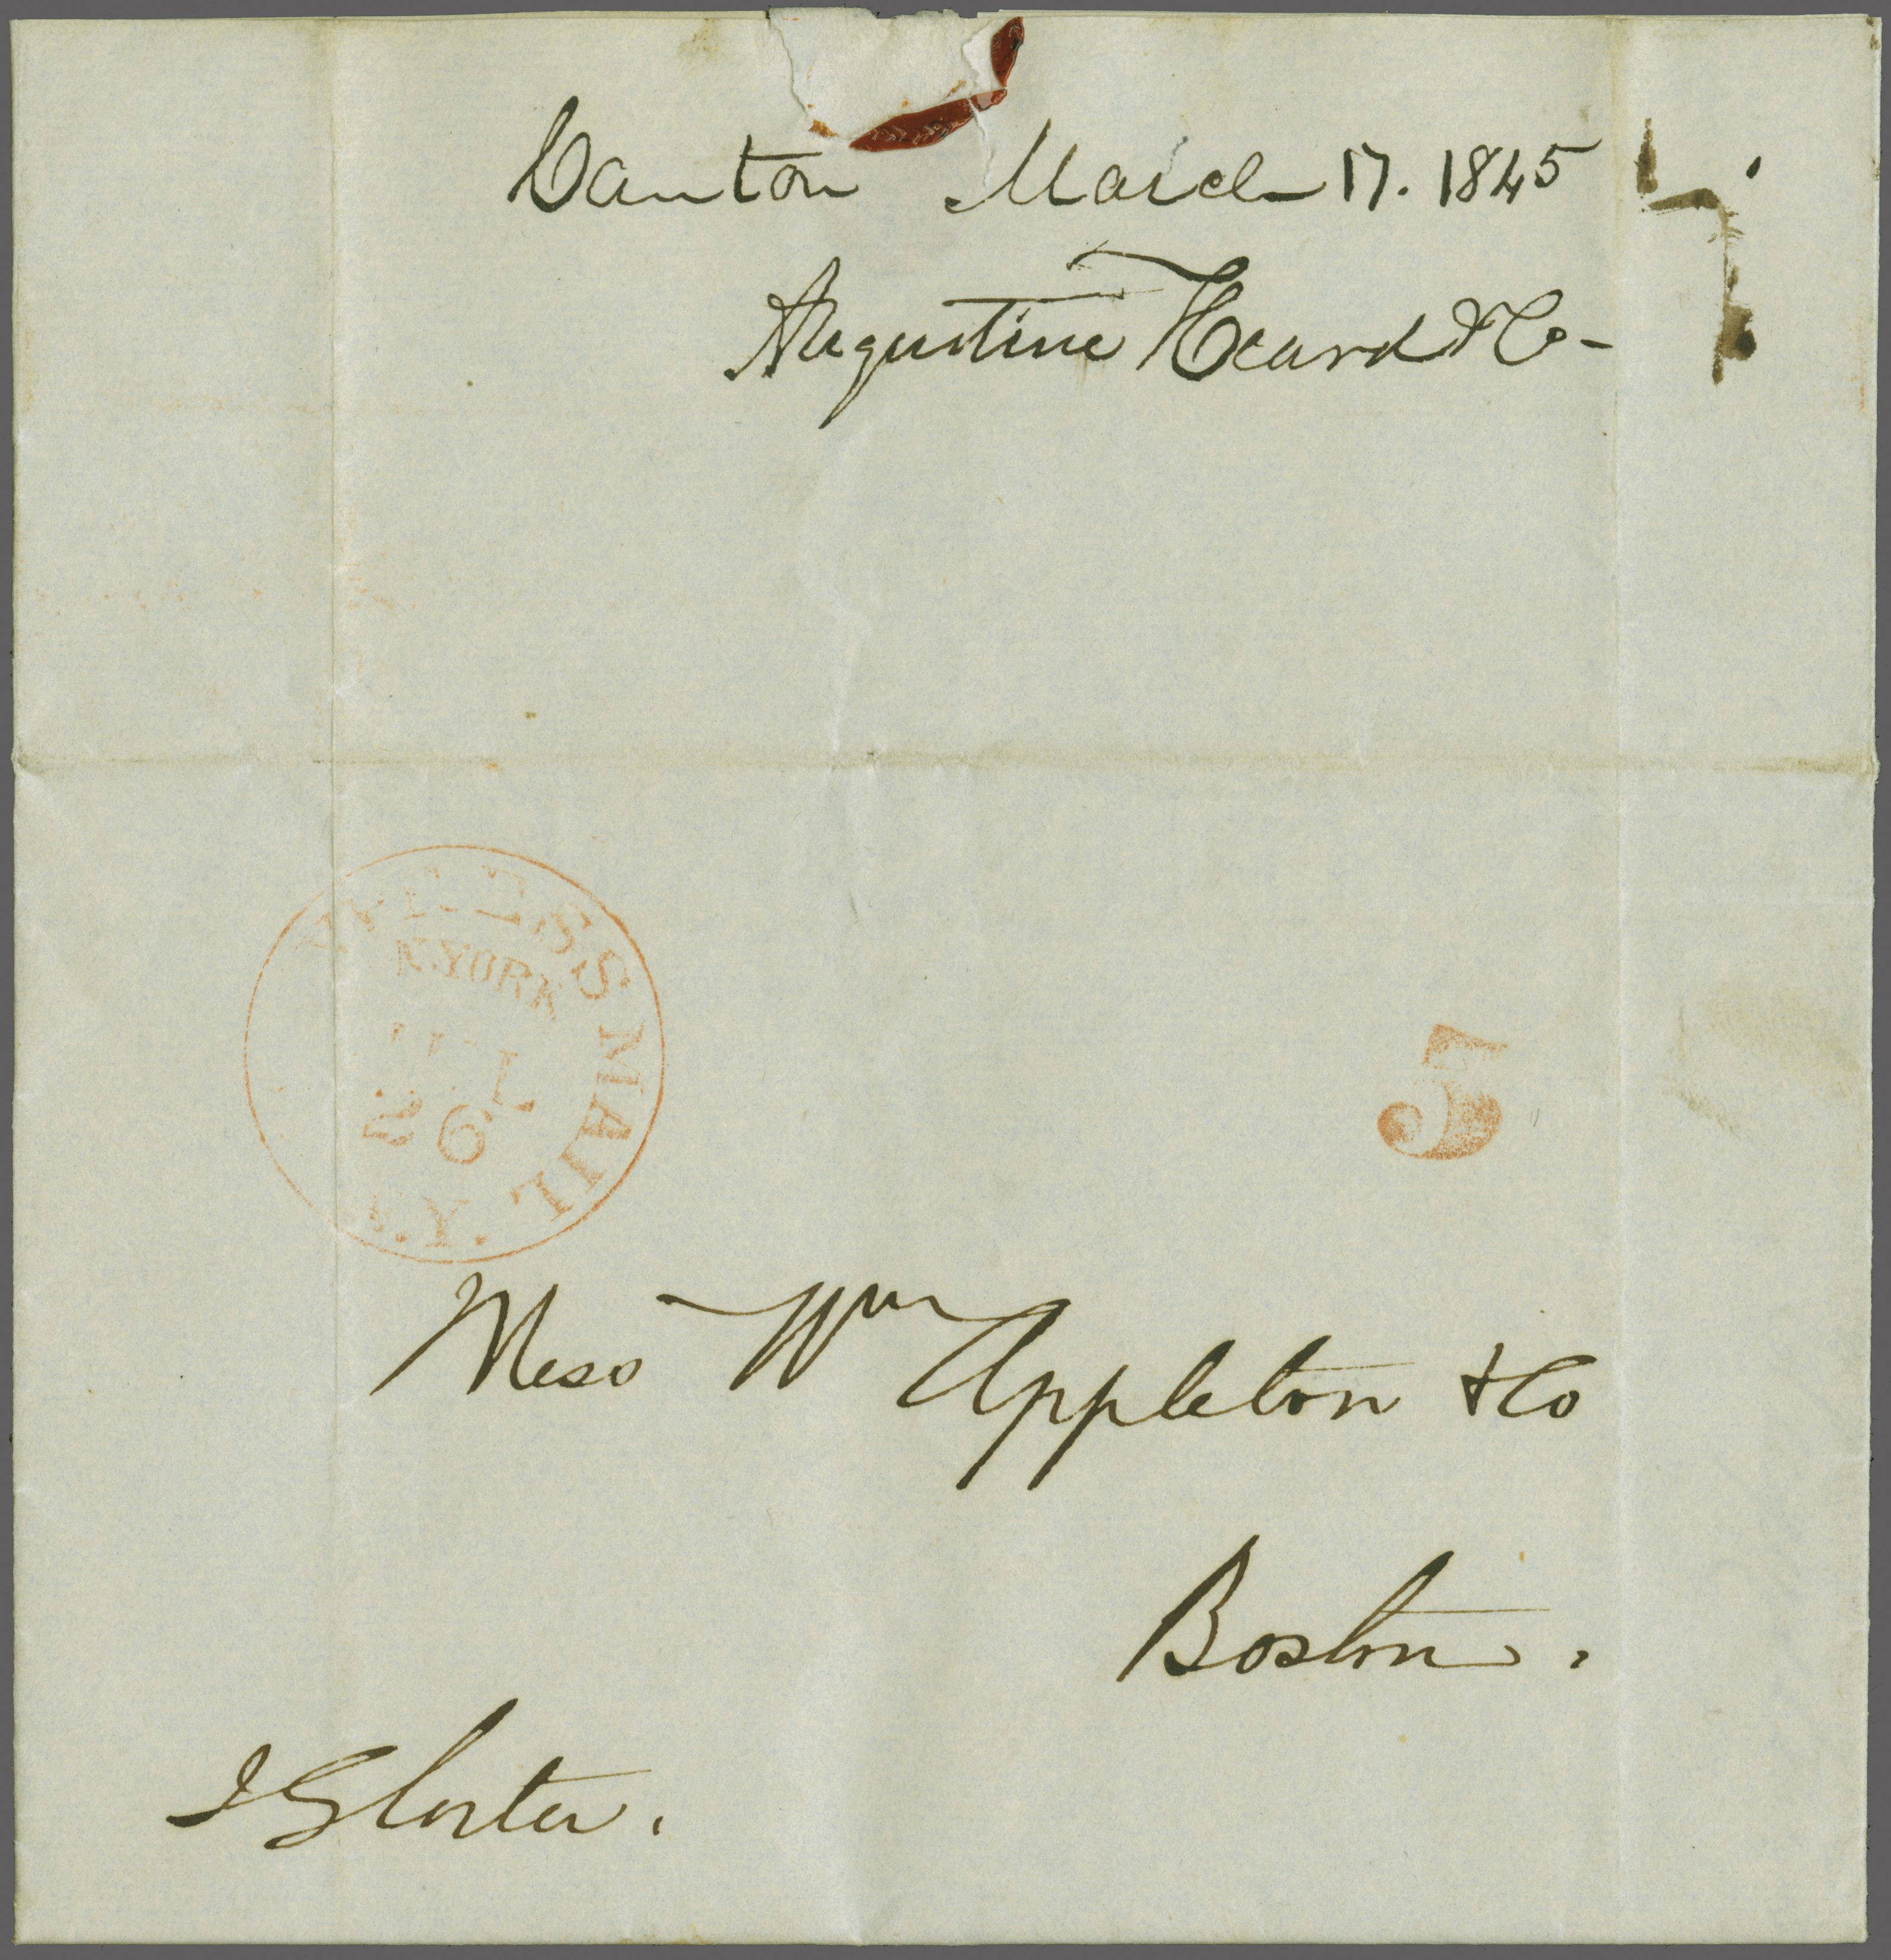 Canton March 17. 1845
Augustine Heard & Co-
EXPRESS MAIL N.Y.
N.YORK
JUL
26
5
Mess Wm Appleton & Co
Boston.